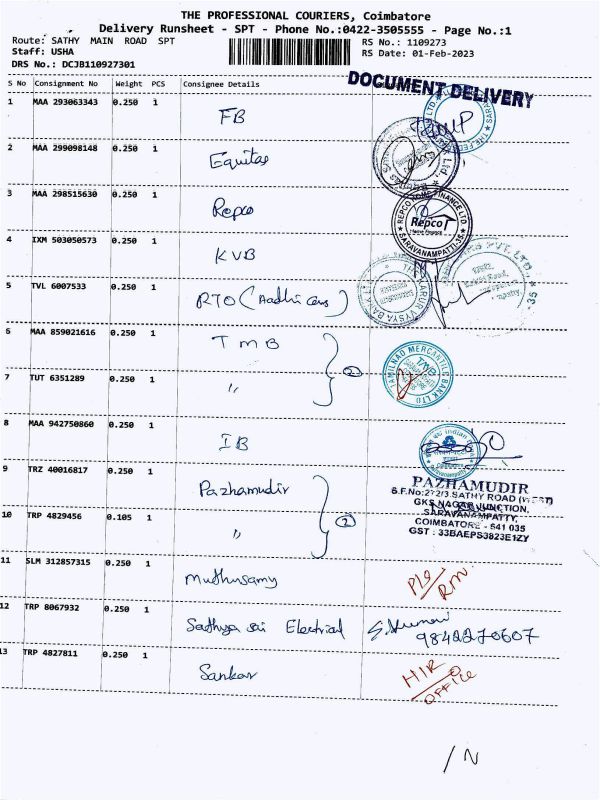 THE PROFESSIONAL COURIERS, Coimbatore
Delivery Runsheet - SPT - Phone No.:0422-3505555 - Page No.:1
Route: SATHY MAIN ROAD SPT
RS No.: 1109273
Staff: USHA
RS Date: 01-Feb-2023
DRS No.: DCJB110927301
DOCUMENT DELIVERY
S No Consignment No Weight PCS Consignee Details
1 MAA 293063343 0.250 1 FB
2 MAA 299098148 0.250 1 Equitas
3 MAA 298515630 0.250 1 Repco
REPCO HOME FINANCE LTD.
Repco
Home Finance
SARAVANAMPATTI-35
4 IXM 503050573 0.250 1 KVB
5 TVL 6007533 0.250 1 RTO (Aadhi cars)
6 MAA 859021616 0.250 1 TMB
TAMILNAD MERCANTILE BANK LTD
TMB
7 TUT 6351289 0.250 1 " (2)
8 MAA 942750860 0.250 1 IB
9 TRZ 40016817 0.250 1 Pazhamudir
PAZHAMUDIR
S.F.No:272/3.SATHY ROAD (WEST)
GKS NAGAR JUNCTION,
SARAVANAMPATTY,
COIMBATORE - 641 035
GST : 33BAEPS3823E1ZY
10 TRP 4829456 0.105 1 " (2)
11 SLM 312857315 0.250 1 Muthusamy
12 TRP 8067932 0.250 1 Sathya sai Electrical S. Kumari
9842270607
13 TRP 4827811 0.250 1 Sankar HIR
OFFICE
/ N